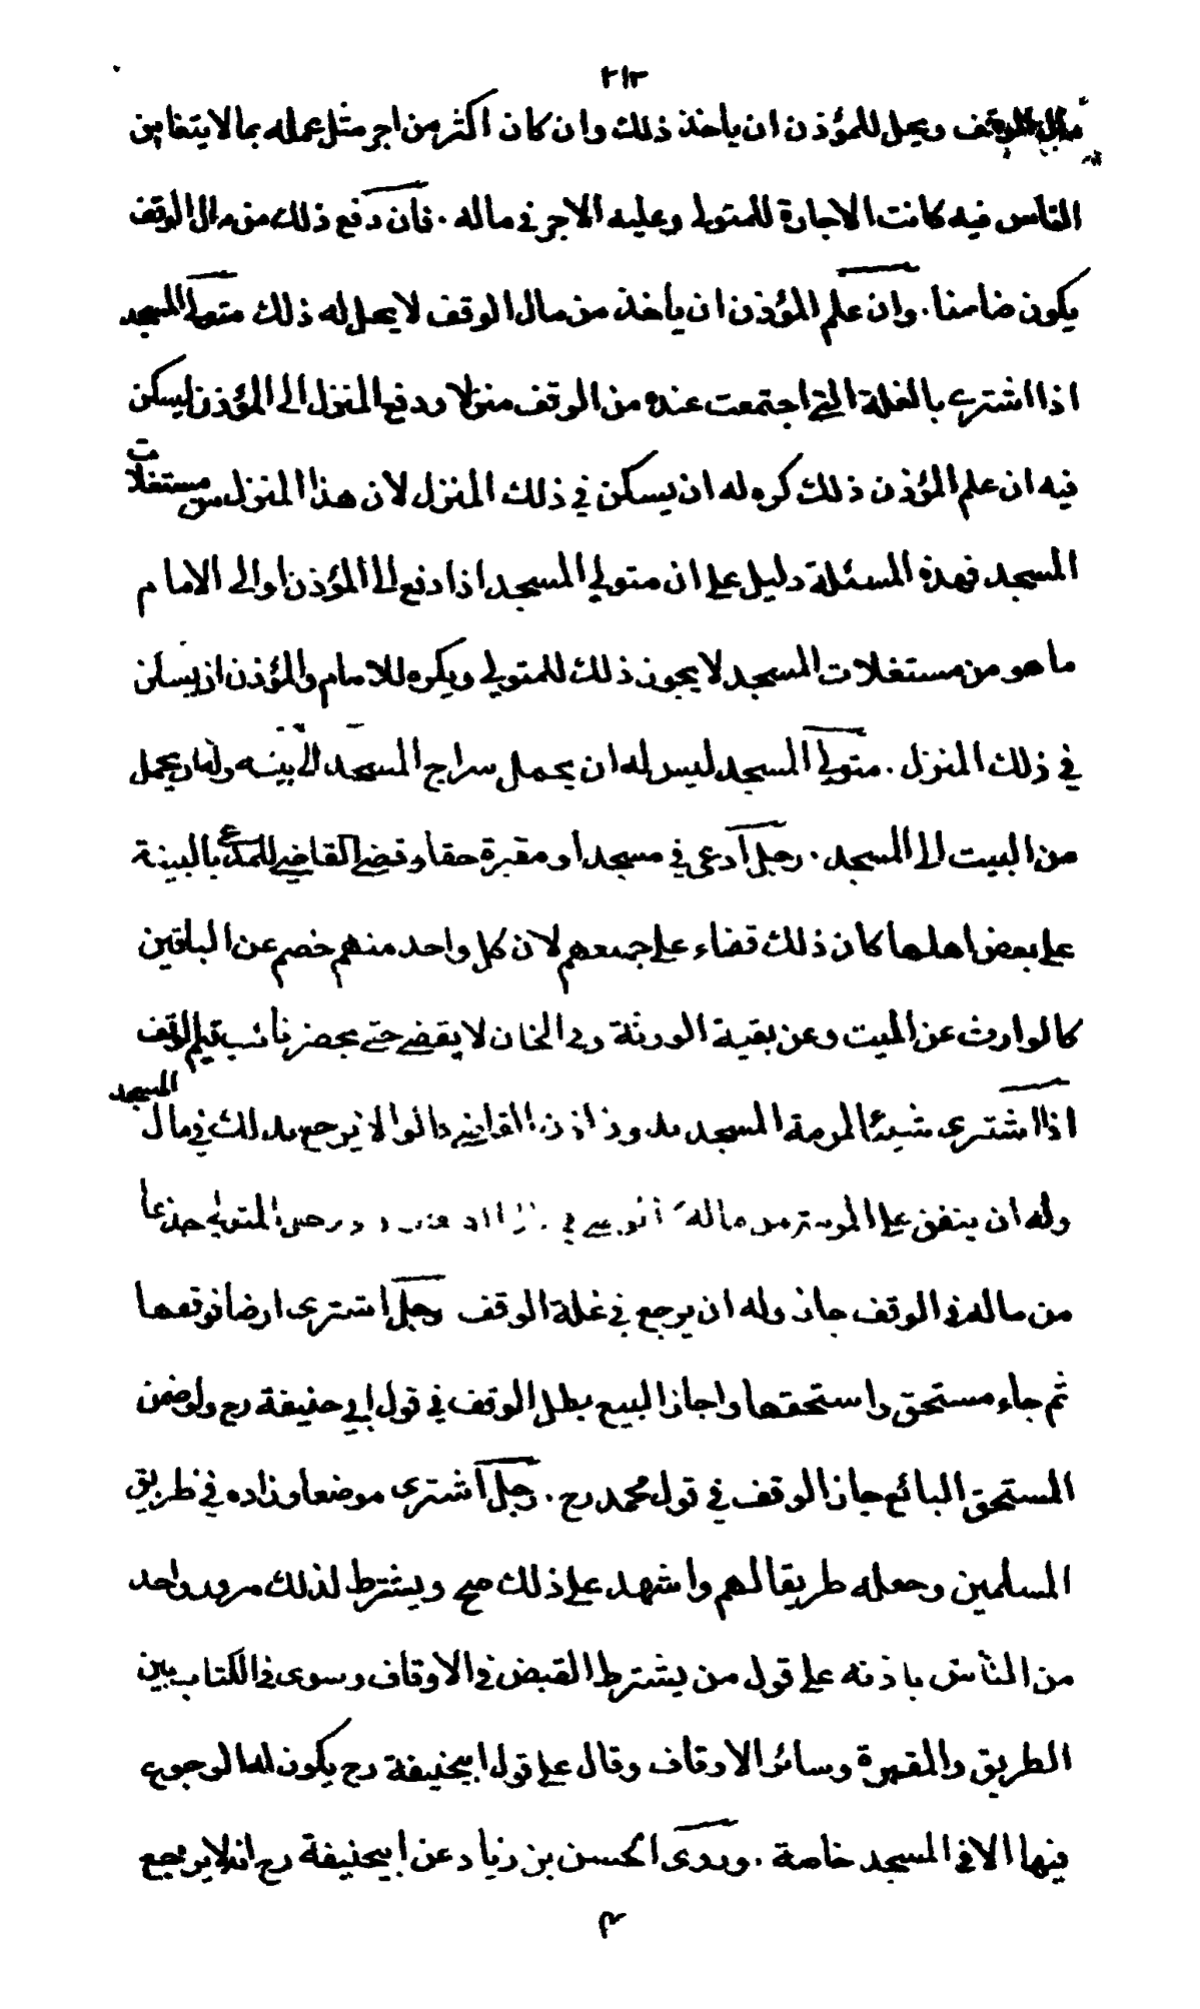 ٢١٣
مال الوقف ويحل للمؤذن ان ياخذ ذلك وان كان اكثر من اجر مثل عمله بما لا يتغابن
الناس فيه كانت الاجارة للمتولى وعليه الاجر فى ماله . فان دفع ذلك من مال الوقف
يكون ضامنا . وان علم المؤذن ان ياخذ من مال الوقف لا يحل له ذلك متولى المسجد
اذا اشترى بالغلة التى اجتمعت عنده من الوقف منزلا ودفع المنزل الى المؤذن ليسكن
فيه ان علم المؤذن ذلك كره له ان يسكن فى ذلك المنزل لان هذا المنزل من مستغلات
المسجد فهذه المسئلة دليل على ان متولى المسجد اذا دفع الى المؤذن او الى الامام
ما هو من مستغلات المسجد لا يجوز ذلك للمتولى ويكره للامام والمؤذن ان يسكن
فى ذلك المنزل . متولى المسجد ليس له ان يحمل سراج المسجد الى بيته وله ان يحمل
من البيت الى المسجد . رجل ادعى فى مسجد او مقبرة حقا وقضى القاضى للمدعى بالبينة
على بعض اهلها كان ذلك قضاء على جميعهم لان كل واحد منهم خصم عن الباقين
كالوارث عن الميت وعن بقية الورثة وفى الخان لا يقضى حتى يحضر نائب قيم الوقف
اذا اشترى شيئا لمرمة المسجد بدون اذن القاضى قالوا لا يرجع بذلك فى مال المسجد
وله ان ينفق على المرمة من ماله المتولى جذعا
من ماله فى الوقف جاز وله ان يرجع فى غلة الوقف رجل اشترى ارضا فوقفها
ثم جاء مستحق واستحقها واجاز البيع بطل الوقف فى قول ابى حنيفة رح ولو ضمن
المستحق البائع جاز الوقف فى قول محمد رح . رجل اشترى موضعا وزاده فى طريق
المسلمين وجعله طريقا لهم واشهد على ذلك صح ويشترط لذلك مرور واحد
من الناس باذنه على قول من يشترط القبض فى الاوقاف وسوى فى الكتاب بين
الطريق والمقبرة وسائر الاوقاف وقال على قول ابيحنيفة رح يكون له الرجوع
فيها الا فى المسجد خاصة . وروى الحسن بن زياد عن ابيحنيفة رح انه لا يرجع